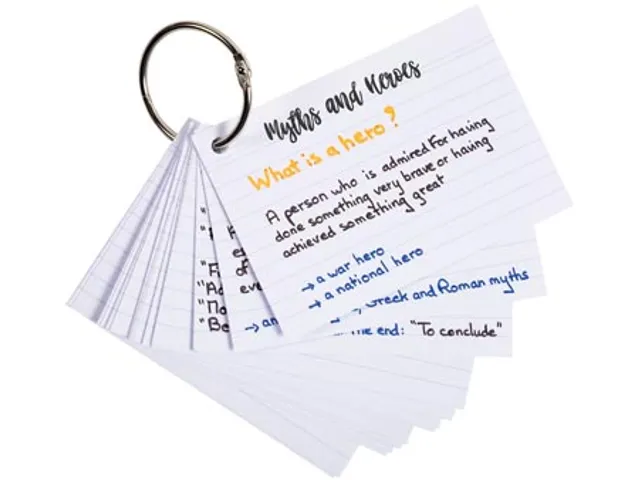 Myths and Heroes
What is a hero?
A person who is admired for having
done something very brave or having
achieved something great
→ a war hero
→ a national hero
Greek and Roman myths
→ an
the end: "To conclude"
of
eve
"Be